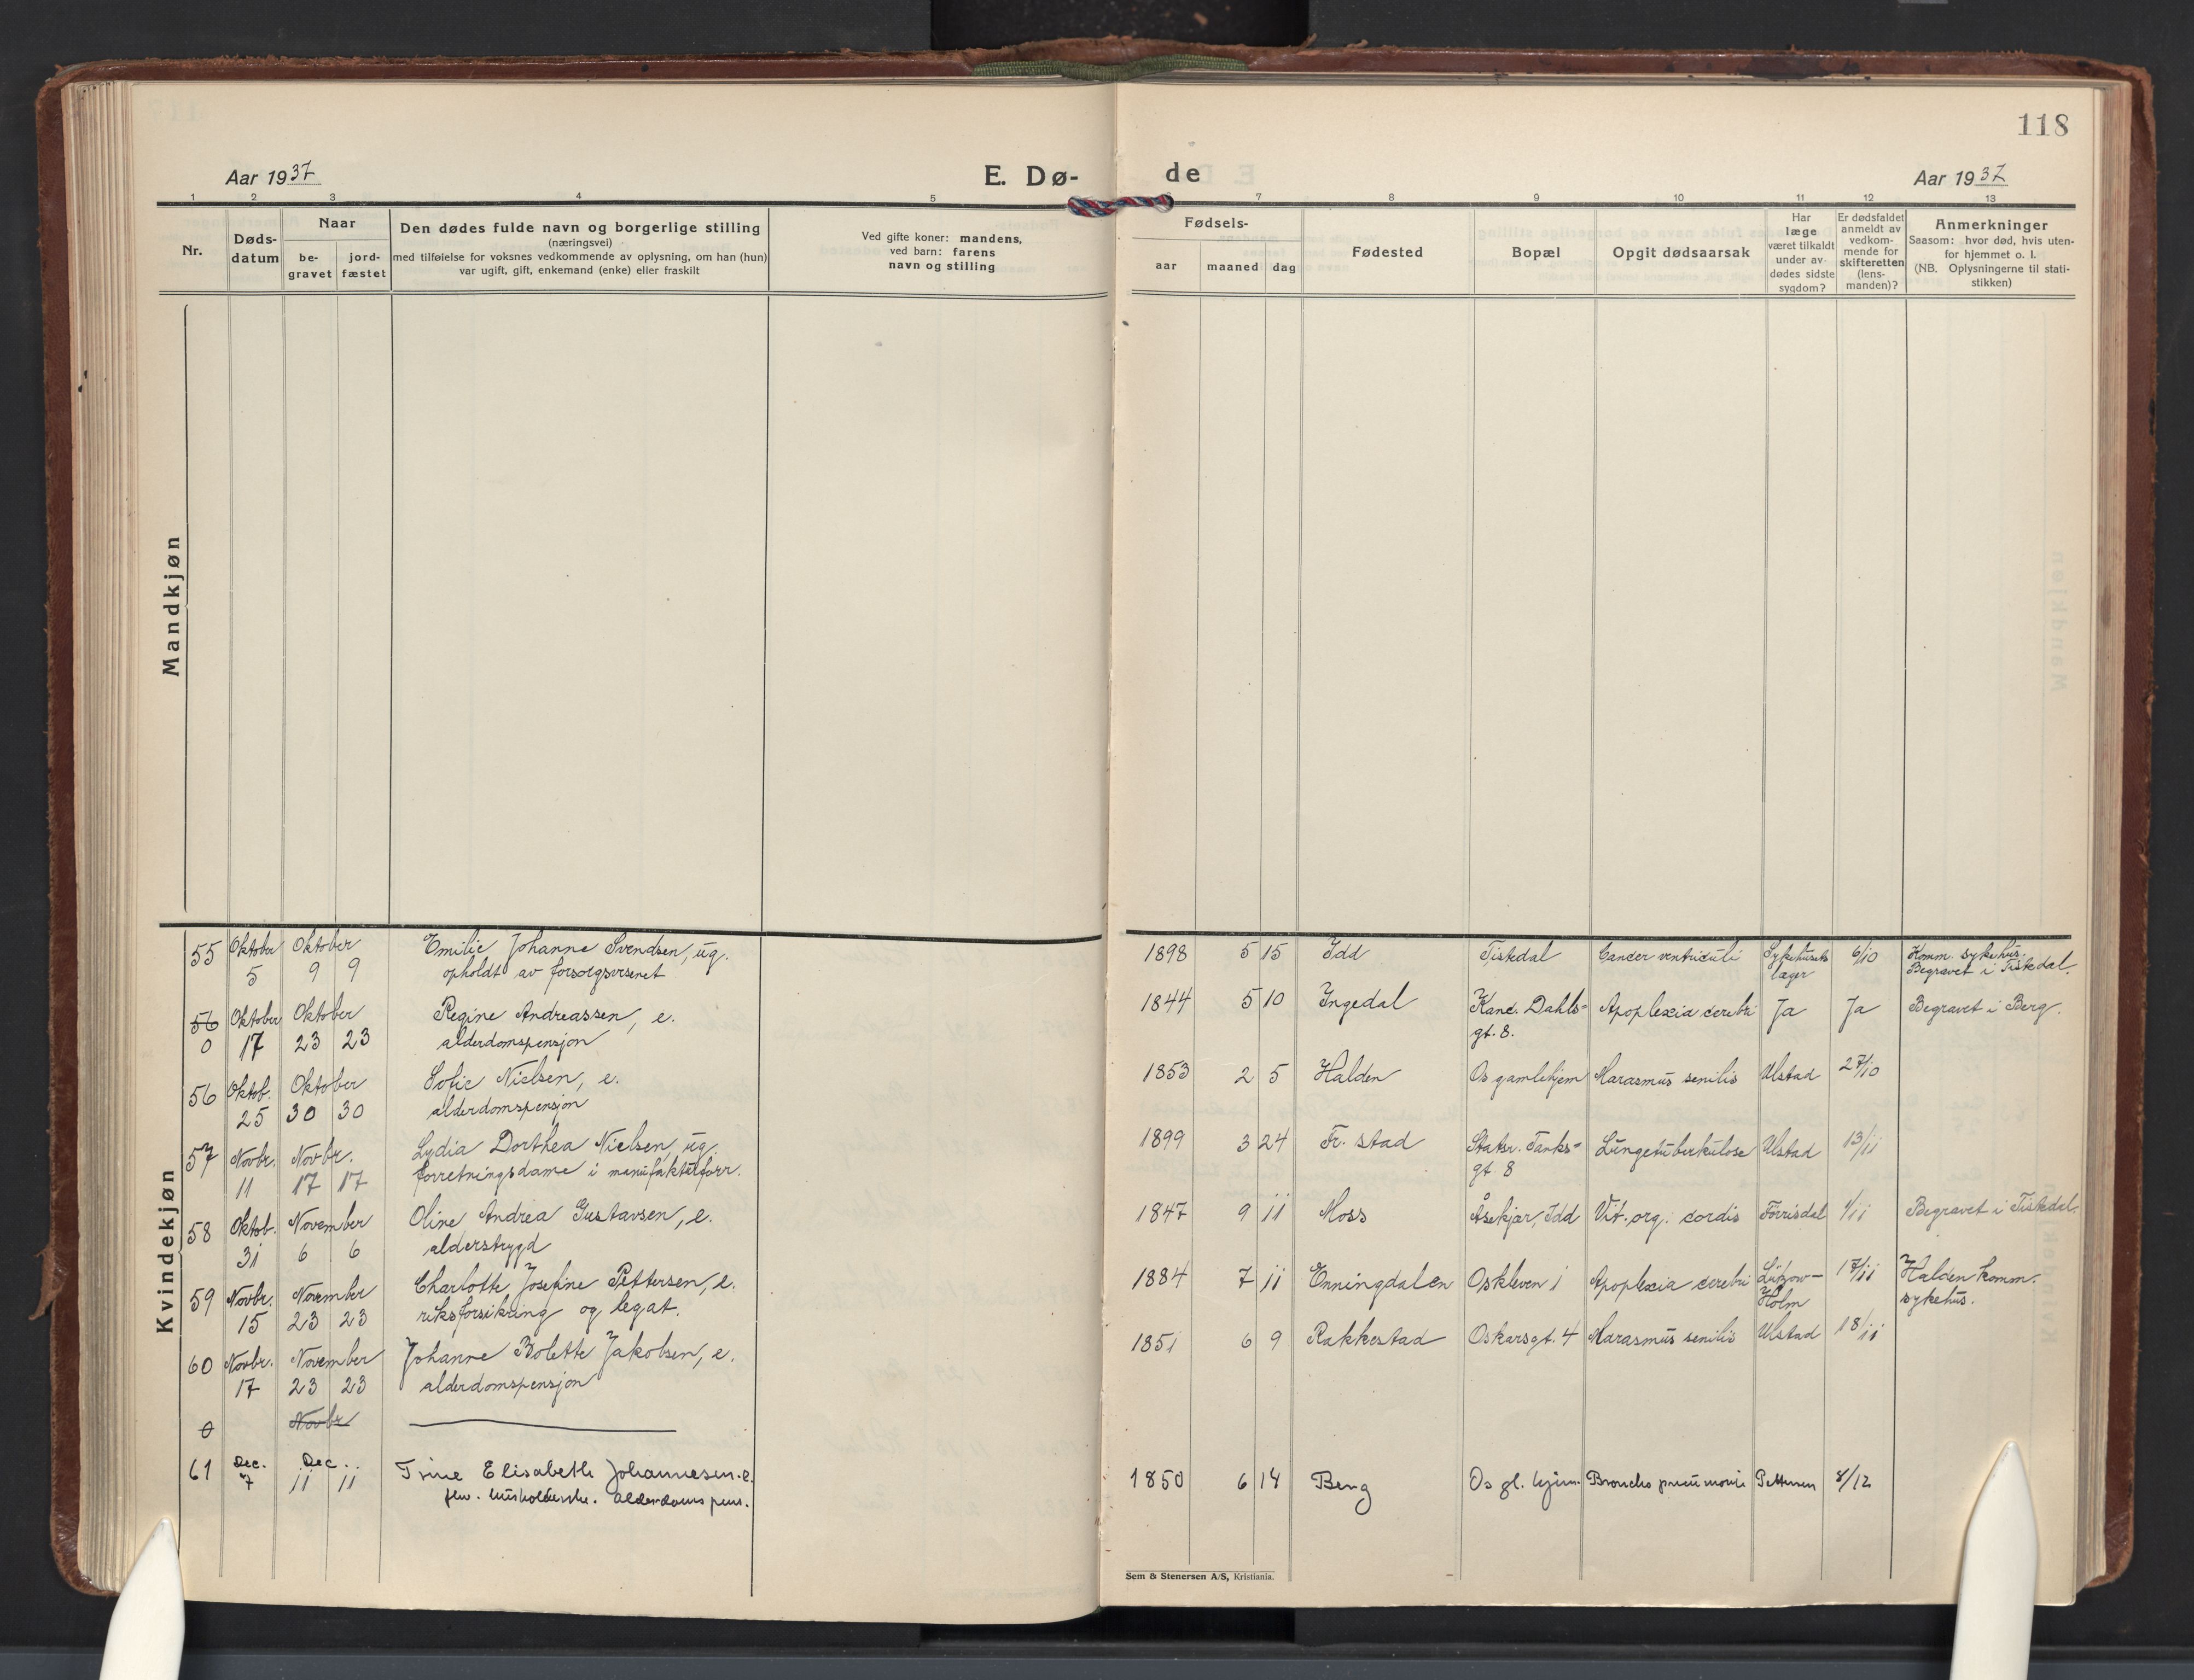 118
Aar 1937
E. Dø-
de
Aar 1937
1 2 3 4 5 7 8 9 10 11 12 13
Nr.
Døds-
datum
Naar
be-
gravet
jord-
fæstet
Den dødes fulde navn og borgerlige stilling
(næringsvei)
med tilføielse for voksnes vedkommende av oplysning, om han (hun)
var ugift, gift, enkemand (enke) eller fraskilt
Ved gifte koner: mandens,
ved barn: farens
navn og stilling
Fødsels-
aar maaned dag
Fødested
Bopæl
Opgit dødsaarsak
Har
læge
været tilkaldt
under av-
dødes sidste
sygdom?
Er dødsfaldet
anmeldt av
vedkom-
mende for
skifteretten
(lens-
manden)?
Anmerkninger
Saasom: hvor død, hvis uten-
for hjemmet o. l.
(NB. Oplysningerne til stati-
stikken)
Mandkjøn
Kvindekjøn
55 Oktober Oktober Emilie Johanne Svendsen, ug. 1898 5 15 Idd Tistedal Cancer ventriculi Sykehusets 6/10 Komm. sykehus.
5 9 9 opholdt av forsorgsvesenet læger Begravet i Tistedal.
56 Oktober Oktober Regine Andreassen, e. 1844 5 10 Ingedal Kanc. Dahls= Apoplexia cerebri Ja Ja Begravet i Berg.
0 17 23 23 alderdomspensjon gt. 8.
56 Oktob. Oktober Sofie Nielsen, e. 1853 2 5 Halden Os gamlehjem Marasmus senilis Ulstad 27/10
25 30 30 alderdomspensjon
57 Novbr. Novbr. Lydia Dorthea Nielsen, ug. 1899 3 24 Fr. stad Statsr. Tanks= Lungetuberkulose Ulstad 13/11
11 17 17 forretningsdame i manufakturforr. gt 8
58 Oktob. November Oline Andrea Gustavsen, e. 1847 9 11 Moss Åsekjær, Idd Vit. org. cordis Forrisdal 1/11 Begravet i Tistedal.
31 6 6 alderstrygd
59 Novbr. November Charlotte Josefine Pettersen, e. 1884 7 11 Enningdalen Oskleven 1 Apoplexia cerebri Lützow- 17/11 Halden komm.
15 23 23 riksforsikring og legat. Holm sykehus.
60 Novbr. November Johanne Bolette Jakobsen, e. 1851 6 9 Rakkestad Oskarsgt. 4 Marasmus senilis Ulstad 18/11
17 23 23 alderdomspensjon
0 Novbr
61 Dec. Dec. Trine Elisabeth Johannesen. e. 1850 6 14 Berg Os gl. hjem Broncho pneumoni Pettersen 8/12
7 11 11 fhv. husholderske. Alderdoms pens.
Sem & Stenersen A/S, Kristiania.